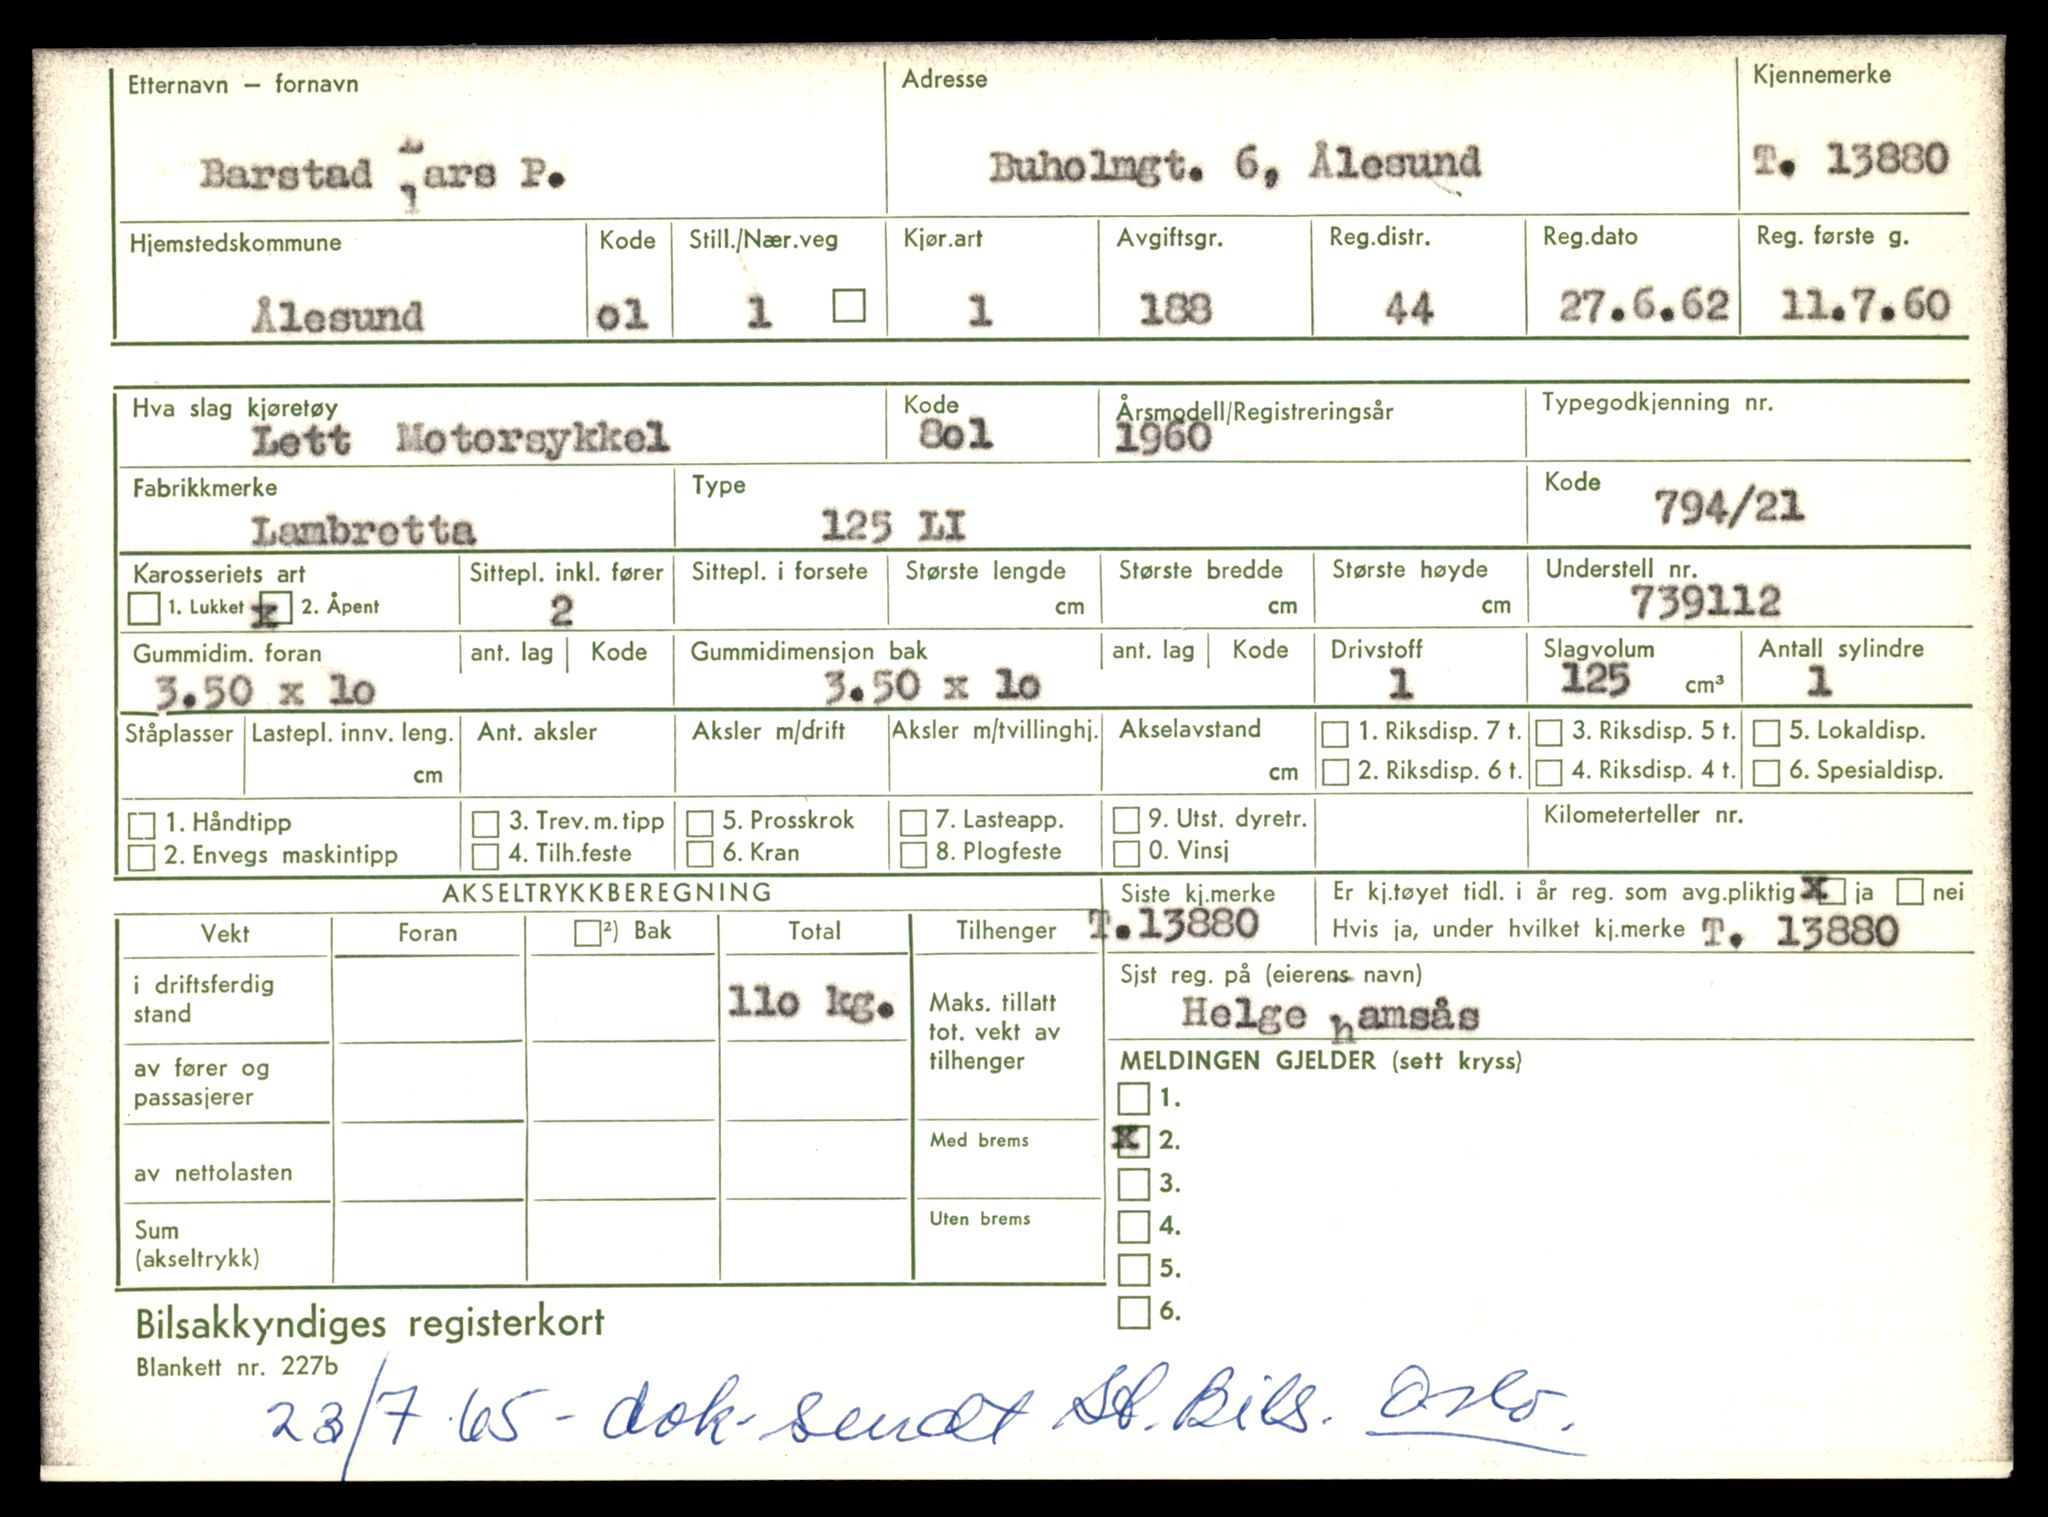 Etternavn – fornavn Adresse Kjennemerke
Barstad lars P. Buholmgt. 6, Ålesund T. 13880
Hjemstedskommune Kode Still./Nær.veg Kjør.art Avgiftsgr. Reg.distr. Reg.dato Reg. første g.
Ålesund o1 1 1 188 44 27.6.62 11.7.60
Hva slag kjøretøy Kode Årsmodell/Registreringsår Typegodkjenning nr.
Lett Motorsykkel 8o1 1960
Fabrikkmerke Type Kode
Lambretta 125 LI 794/21
Karosseriets art Sittepl. inkl. fører Sittepl. i forsete Største lengde Største bredde Største høyde Understell nr.
1. Lukket x 2. Åpent 2 cm cm cm 739112
Gummidim. foran ant. lag Kode Gummidimensjon bak ant. lag Kode Drivstoff Slagvolum Antall sylindre
3.50 x 1o 3.50 x 1o 1 125 cm³ 1
Ståplasser Lastepl. innv. leng. Ant. aksler Aksler m/drift Aksler m/tvillinghj. Akselavstand 1. Riksdisp. 7 t. 3. Riksdisp. 5 t. 5. Lokaldisp.
cm cm 2. Riksdisp. 6 t. 4. Riksdisp. 4 t. 6. Spesialdisp.
1. Håndtipp 3. Trev. m. tipp 5. Prosskrok 7. Lasteapp. 9. Utst. dyretr. Kilometerteller nr.
2. Envegs maskintipp 4. Tilh.feste 6. Kran 8. Plogfeste 0. Vinsj
AKSELTRYKKBEREGNING Siste kj.merke Er kj.tøyet tidl. i år reg. som avg.pliktig x ja nei
Vekt Foran ²) Bak Total Tilhenger T.13880 Hvis ja, under hvilket kj.merke T. 13880
i driftsferdig stand 110 kg. Maks. tillatt tot. vekt av tilhenger
Sist reg. på (eierens navn)
Helge hamsås
av fører og passasjerer
MELDINGEN GJELDER (sett kryss)
1.
Med brems x 2.
av nettolasten 3.
Uten brems 4.
Sum (akseltrykk) 5.
6.
Bilsakkyndiges registerkort
Blankett nr. 227b
23/7 65 - dok. sendt St. Bils. Oslo.